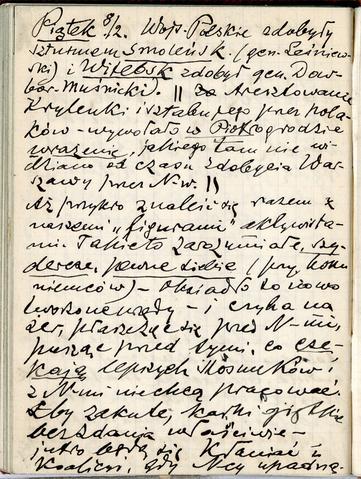 Piątek 8/2. Wojs. Polskie zdobyły
szturmem Smoleńsk. (gen. Leśniew-
ski) i Witebsk zdobył gen. Dow-
bór-Muśnicki. || Aresztowanie
Krylenki i sztabu jego przez Pola-
ków - wywołało w Piotrogrodzie
wrażenie, jakiego tam nie wi-
dziano od czasu zdobycia War-
szawy przez N-w. ||
Aż przykro znaleźć się razem z
naszemi „figurami" aktywista-
mi. Takie to zarozumiałe, szy-
dercze, pewne siebie (przy
niemców) - Obsiadło to nowo
tworzone urzędy - i czyha na
żer, płaszcząc się przed N-mi,
pusząc przed tymi, co cze-
kają lepszych stosunków i
z N-mi nie chcą pracować.
Łby zakute, karki giętkie
bez zdania właściwie -
jutro będą się kłaniać i
Koalicji, gdy N-cy upadną.